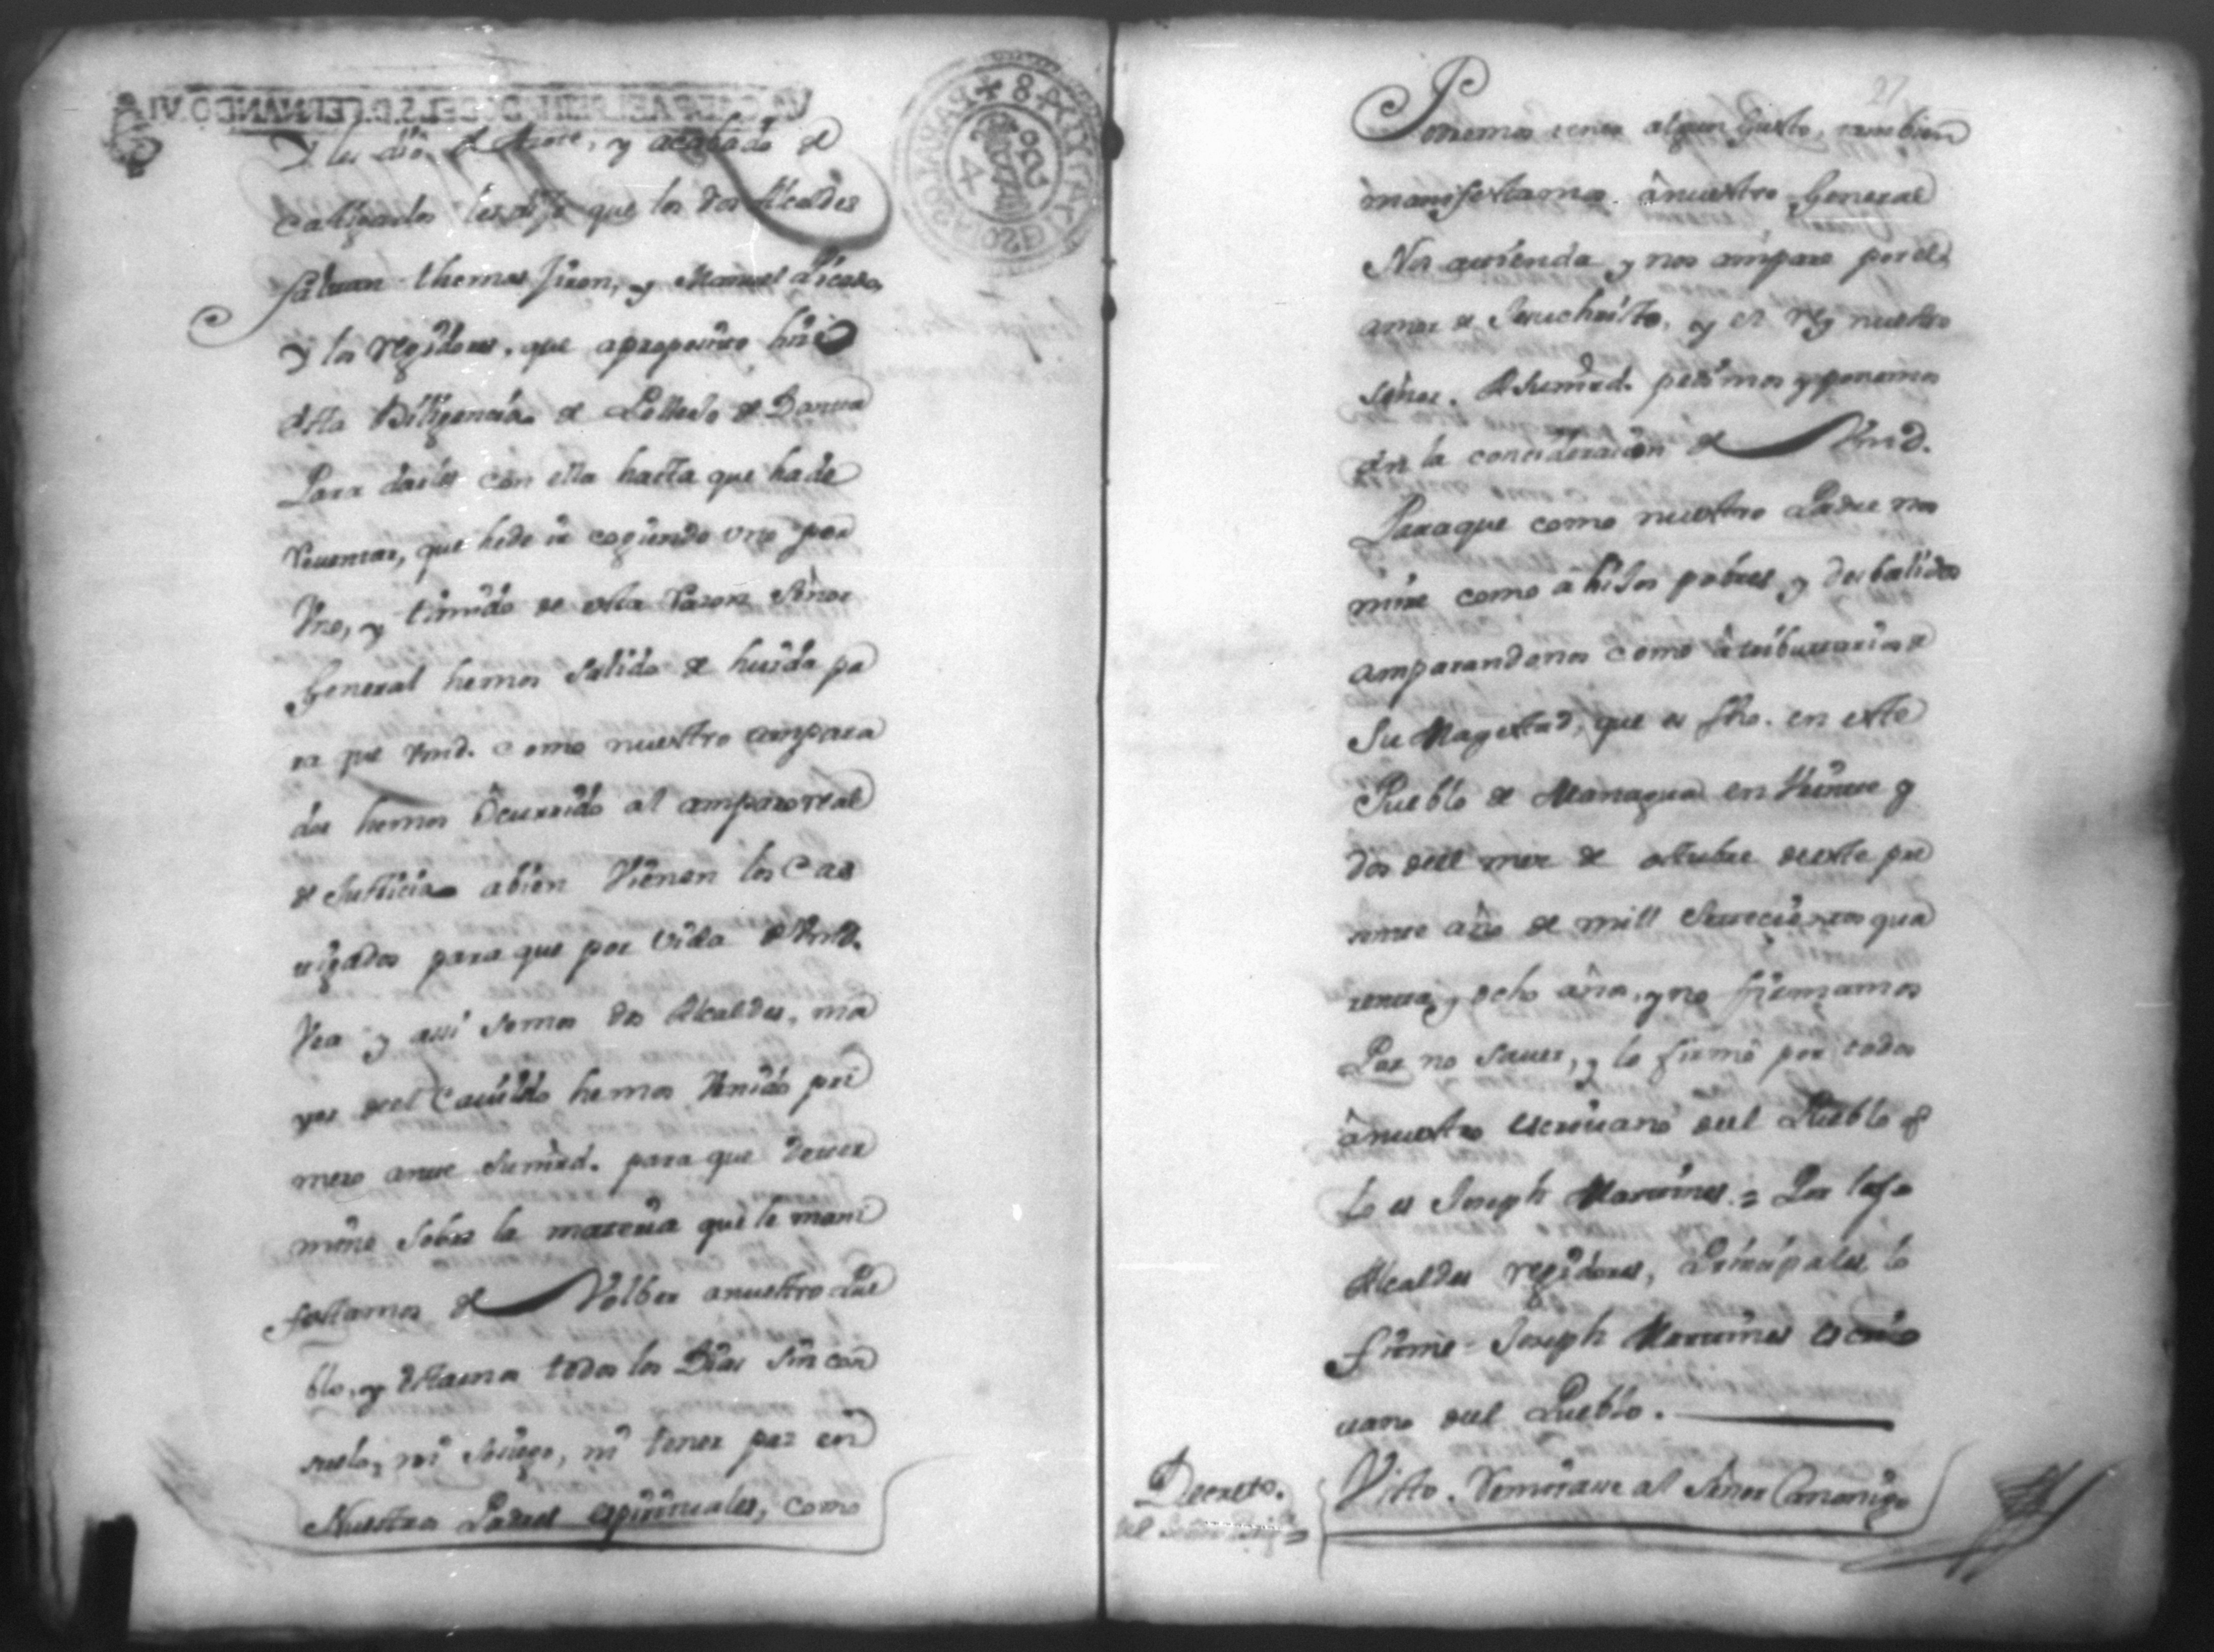 y les dio de Azote, y acabado de
castigarlos les dijo que los dos Alcaldes
faltavan thomas Jiron, y Manuel
y los regidores, que aproposito hiso
esta Diligencia de Pellejo de Danta
Para darles con ella hasta que hade
reventar, que hede ir cogiendo uno por
Vno, y timido de esta razon señor
General hemos salido de huida pa
ra que Vmd. como nuestro ampara
dor hemos Ocurrido al amparo real
de Justicia abien Vienen los Cas
tigados para que por vida de Vmd.
Vea y assi somos dos Alcaldes, ma
yor deel Cavildo hemos Venido pri
mero ante sumrd. para que deter
mine sobre la materia que le mani
festamos de Volber anuestro Pue
blo, y estamos todos los Dias sin con
suelo, ni sosiego, ni tener paz con
Nuestros Padres espirituales, como
Ponemos tener algun Gusto, tambien
manifestamos. ânuestro General
Nos atienda y nos ampare por el
amor de Jesuchristo, y el rey nuestro
señor. A sumrd. pedimos y ponemos
en la concideracion de Vmd.
Paraque como nuestro Padre nos
mire como â hijos pobres y desbalidos
amparandonos como â tributarios de
Su Magestad, que es fho. en este
Pueblo de Managua en Veinte y
dos deel mes de octubre deeste pre
sente año de mill setecientos qua
renta, y ocho años, y no firmamos
Por no saver, y lo firmô por todos
ânuestro escrivano deel Pueblo q
lo es Joseph Martines = Por los
Alcaldes regidores, Principales, lo
firme - Joseph Martines escri
vano deel Pueblo.
Decreto.
del Señor
Visto. Remitase al señor Canonigo